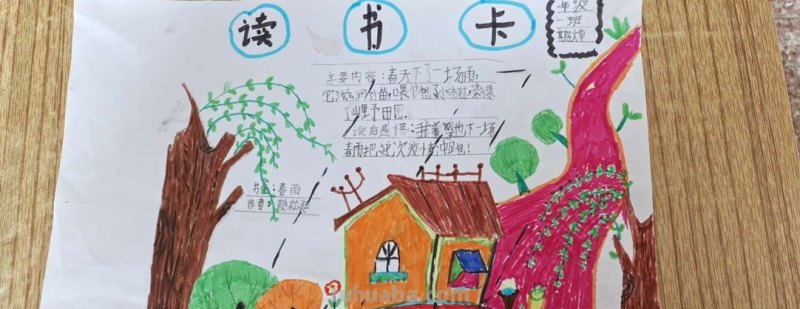 读书卡
一年级
一班
主要内容：春天下了一场雨，
它滋润树苗，
了山野田园。
读后感悟：我希望也下一场
春雨把这次疫情冲跑！
书名：春雨
作者：
huaba.com